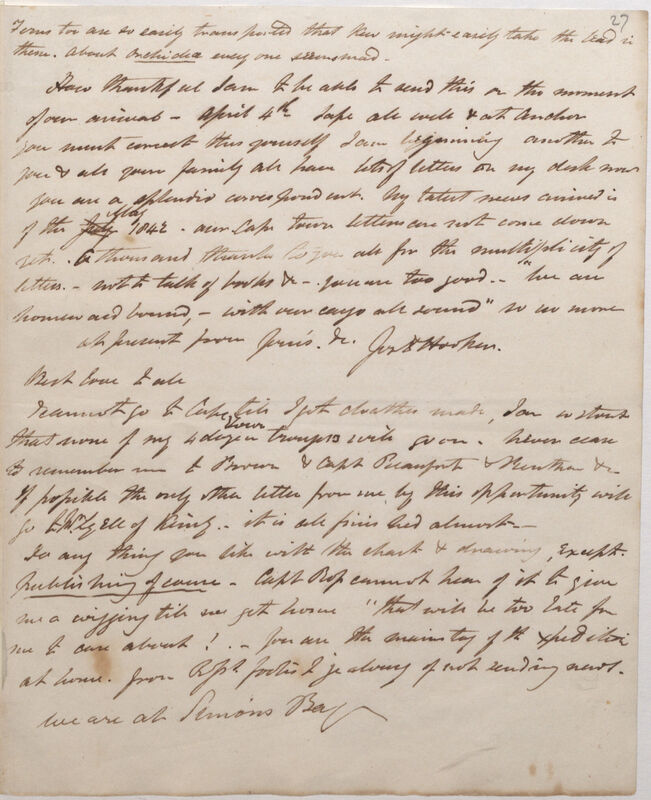 27
Ferns too are so easily transported that Kew might easily take the lead in
them. About Orchideæ every one seems mad.
How thankful I am to be able to send this on the moment
of our arrival - April 4th safe all well & at anchor
you must correct this yourself I am beginning another to
you & all your family all have lots of letters on my desk now
you are a splendid correspondent. My latest news arrived is
of the July May 1842 - our Cape town letters are not come down
yet. A thousand thanks to you all for the multiplicity of
letters. - not to talk of books & - you are too good. - "We are
homeward bound, - with our cargo all sound" so no more
at present from Yours. &c. Jos D Hooker.
Best love to all
I cannot go to Cape Town till I get cloathes made, I am so stout
that none of my 4 trousers will go on. Never cease
to remember me to Brown & Capt Beaufort &
If possible the only other letter from me by this opportunity will
go to Mr Lyell of Kinnordy - it is all finished almost -
Do any thing you like with the chart & drawing, except
publishing of course - Capt Ross cannot hear of it to give
me a wigging till we get home "that will be too late for
me to care about! - You are the mainstay of the expedition
at home. from jealousy of not sending news.
We are at Simons Bay